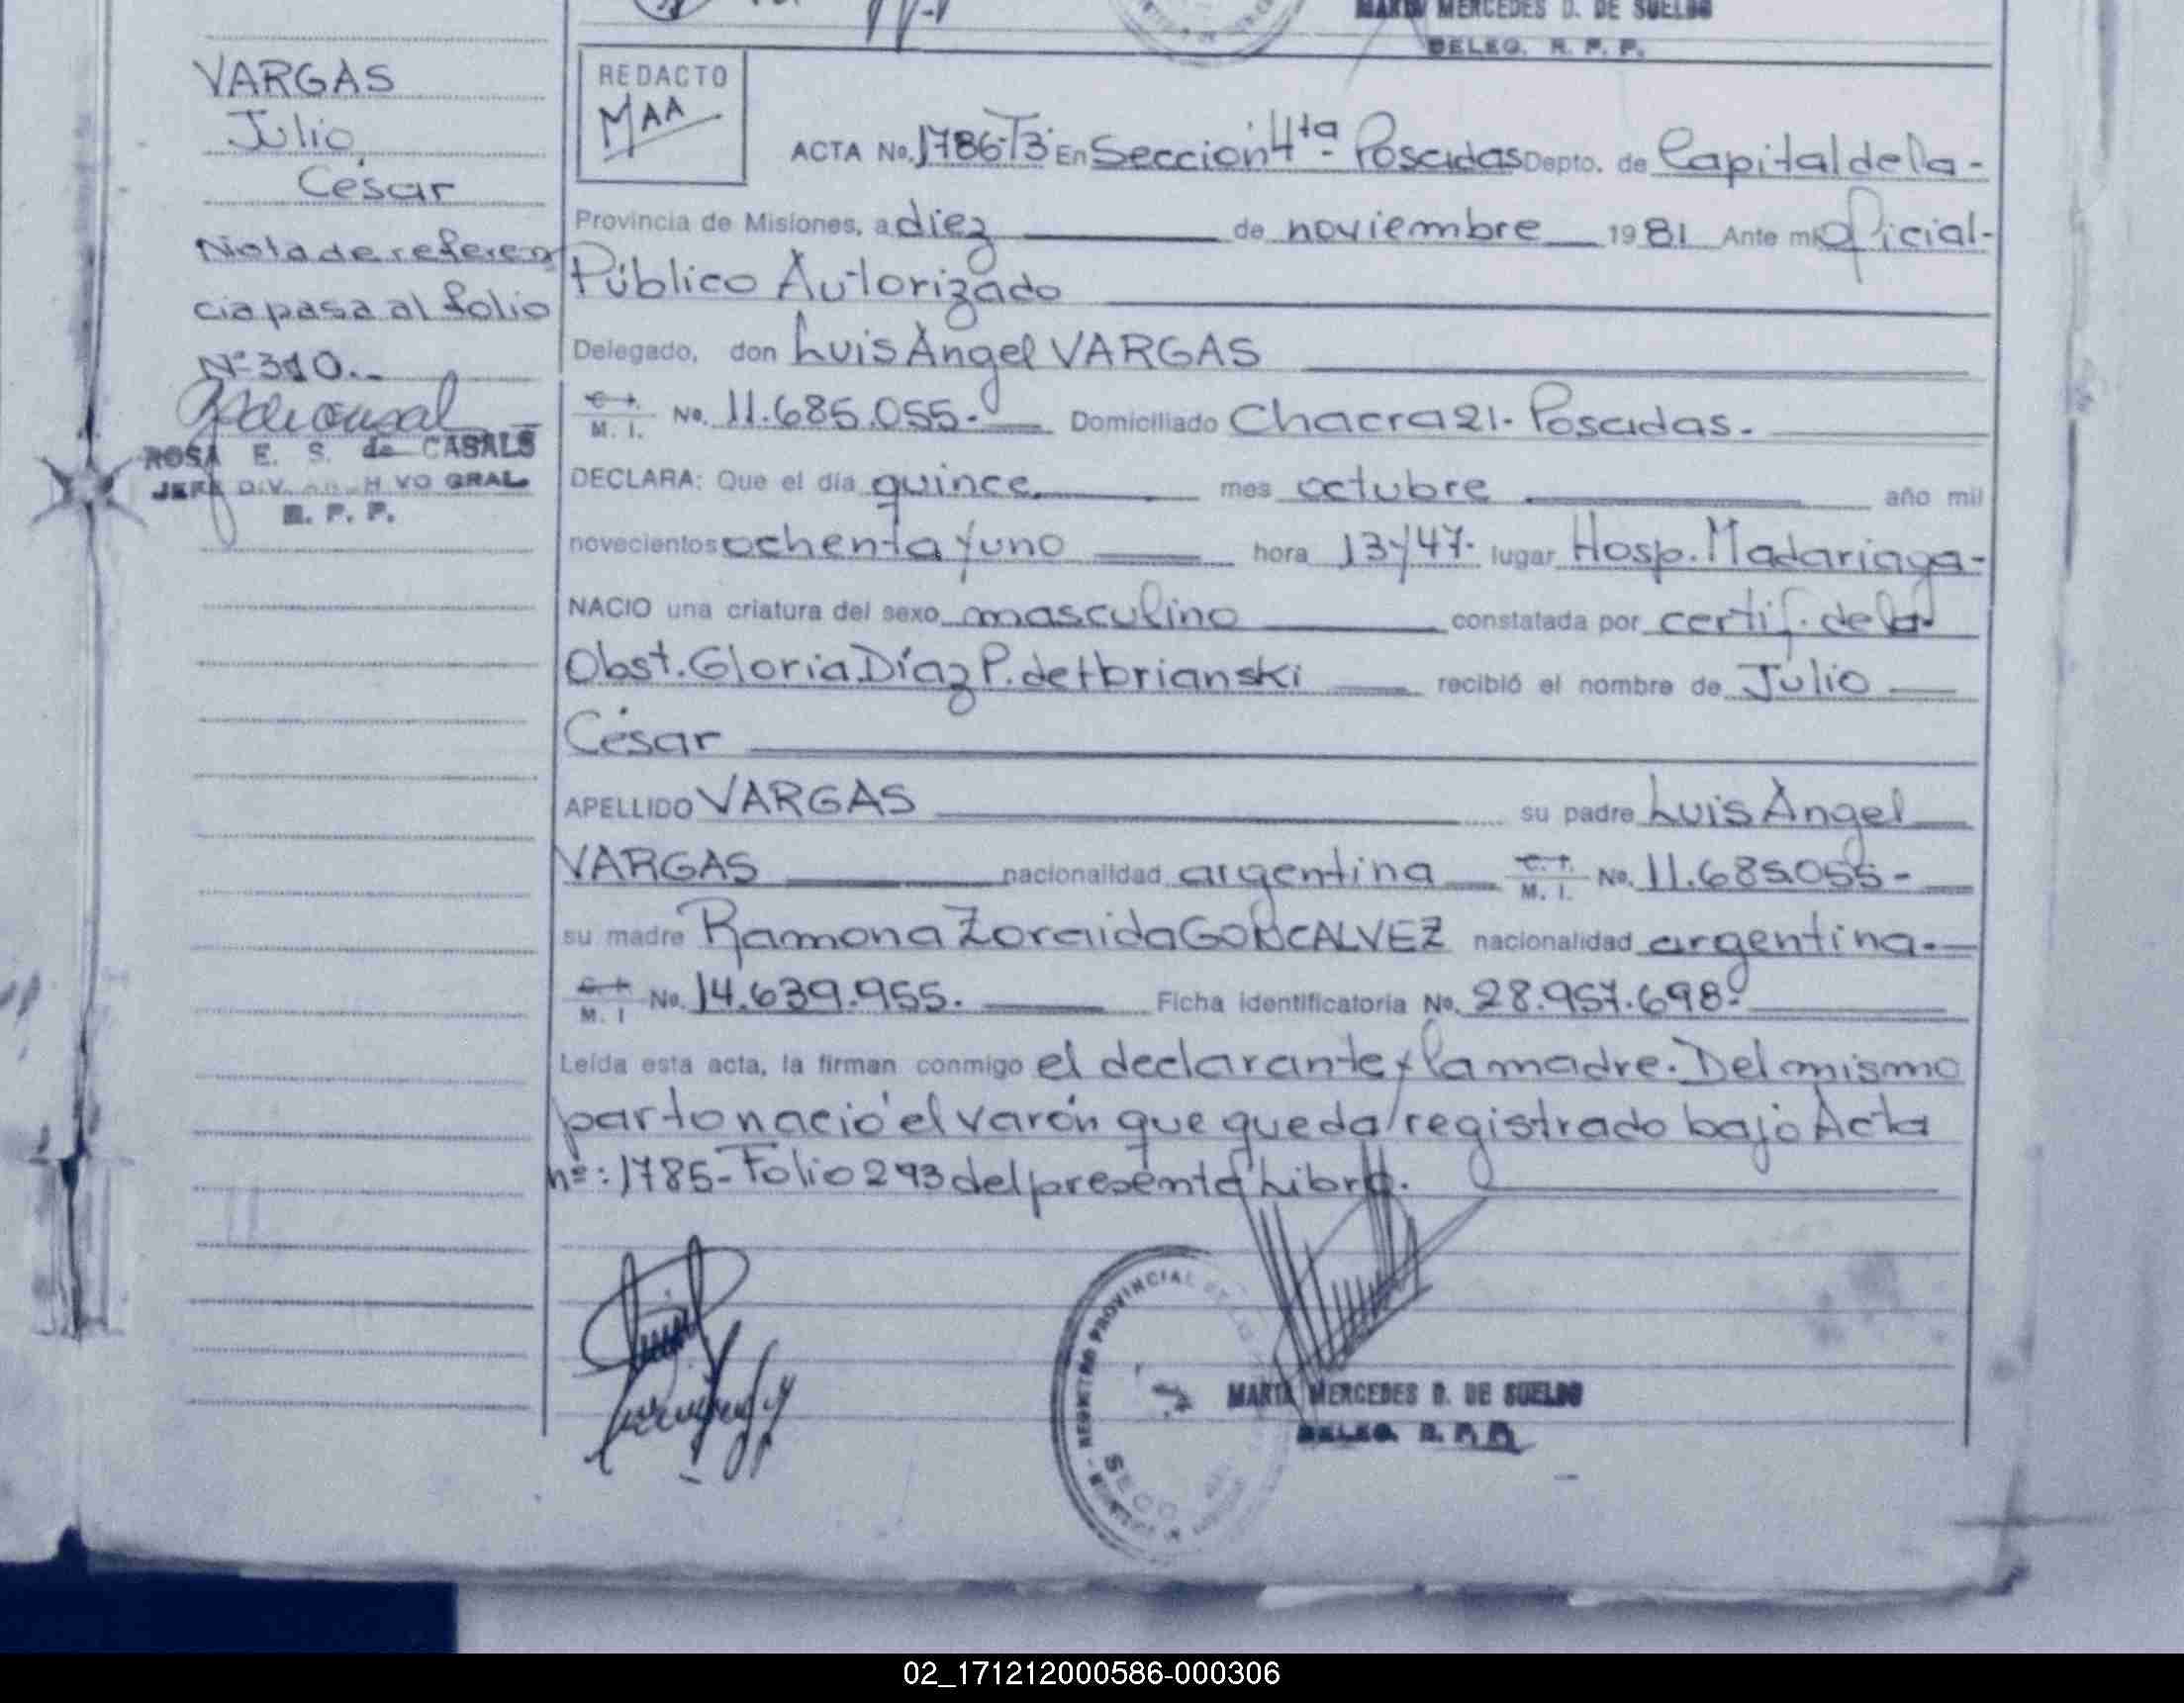 MARIA MERCEDES D. DE SUELDO
DELEG. R. P. P.
VARGAS
Julio,
César
Nota de referen
cia pasa al folio
Nº 310.-
ROSA E. S. de CASALS
JEFA DIV. ARCHIVO GRAL.
R. P. P.
REDACTO
MAA
ACTA No. 1786-T3- En Sección 4ta- Posadas Depto. de Capital de la-
Provincia de Misiones, a diez de noviembre 1981 Ante mi Oficial-
Público Autorizado
Delegado, don Luis Angel VARGAS
C. I. M. I. No. 11.685.055.- Domiciliado Chacra 21- Posadas.-
DECLARA: Que el día quince mes octubre año mil
novecientos ochenta y uno hora 13 y 47- lugar Hosp. Madariaga-
NACIO una criatura del sexo masculino constatada por certif. de la
Obst. Gloria Díaz P. de Hbrianski recibió el nombre de Julio
César
APELLIDO VARGAS su padre Luis Angel
VARGAS nacionalidad argentina C. I. M. I. No. 11.685.055-
su madre Ramona Zoraida GONCALVEZ nacionalidad argentina.-
C. I. M. I No. 14.639.955. Ficha identificatoria No. 28.957.698-
Leída esta acta, la firman conmigo el declarante y la madre. Del mismo
parto nació el varón que queda registrado bajo Acta
nº: 1785- Folio 293 del presente Libro.
REGISTRO PROVINCIAL DE LAS
SECC
MARIA MERCEDES D. DE SUELDO
DELEG. R. P. P.
02_171212000586-000306